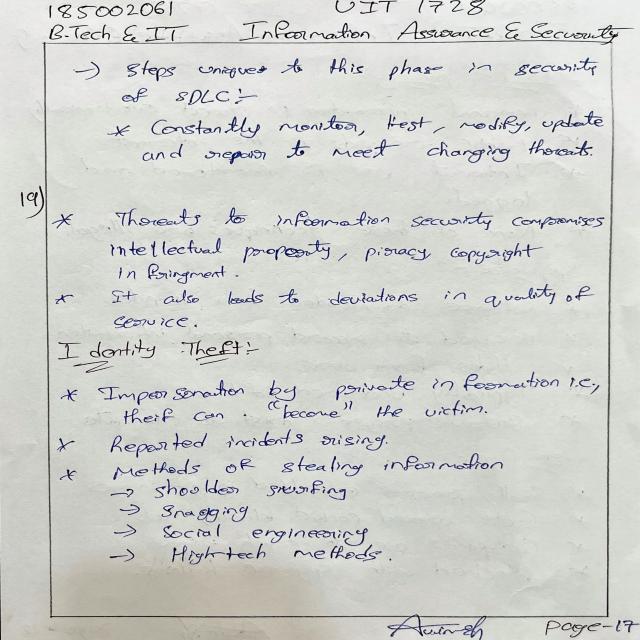 185002061 UIT 1728
B.Tech & IT Information Assurance & Security
→ Steps unique to this phase in security
of SDLC:-
* Constantly monitor, test, modify, update
and repair to meet changing threats.
19)
* Threats to information security compromises
intellectual property, piracy, copyright
infringment.
* It also leads to deviations in quality of
service.
Identity Theft:-
* Impersonation by private information i.e.,
theif can "become" the victim.
* Reported incidents rising.
* Methods of stealing information
→ Shoulder surfing
→ Snagging
→ Social engineering
→ High-tech methods.
Page-17